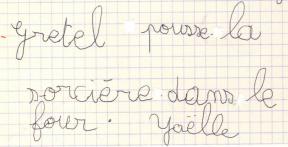 gretel pousse la
sorcière dans le
four. Yaëlle